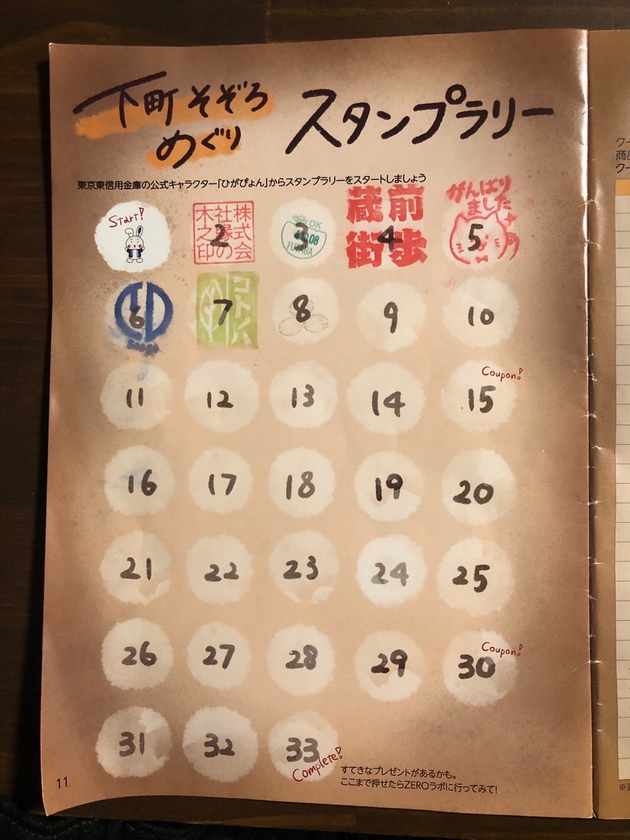 下町 そぞろ
めぐり
スタンプラリー
東京東信用金庫の公式キャラクター「ひがぴょん」からスタンプラリーをスタートしましょう
Start!
株式会
社縁の
木之印
2
OK
3
蔵前
街歩
4
がんばり
ました
5
6
コトハ
7
8
9
10
11
12
13
14
Coupon!
15
16
17
18
19
20
21
22
23
24
25
26
27
28
29
Coupon!
30
31
32
33
Complete!
すてきなプレゼントがあるかも。
ここまで押せたらZEROラボに行ってみて!
11